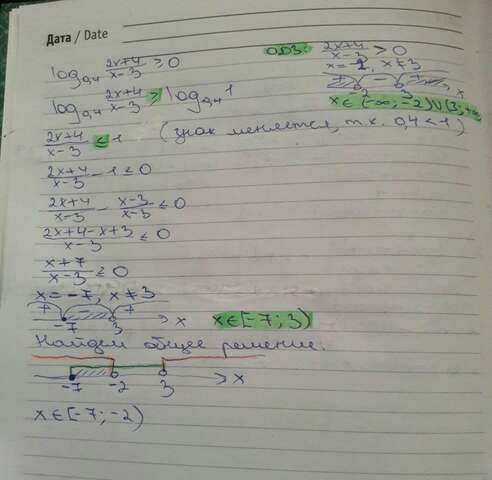 Дата / Date
log₀,₄ (2x+4)/(x-3) ≥ 0
ОДЗ: (2x+4)/(x-3) > 0
x = -2, x ≠ 3
+ - +
-2 3 x
x ∈ (-∞; -2) ∪ (3; +∞)
log₀,₄ (2x+4)/(x-3) ≥ log₀,₄ 1
(2x+4)/(x-3) ≤ 1 (знак меняется, т.к. 0,4 < 1)
(2x+4)/(x-3) - 1 ≤ 0
(2x+4)/(x-3) - (x-3)/(x-3) ≤ 0
(2x+4-x+3)/(x-3) ≤ 0
(x+7)/(x-3) ≤ 0
x = -7, x ≠ 3
+ - +
-7 3 x
x ∈ [-7; 3)
Найдем общее решение:
-7 -2 3 x
x ∈ [-7; -2)